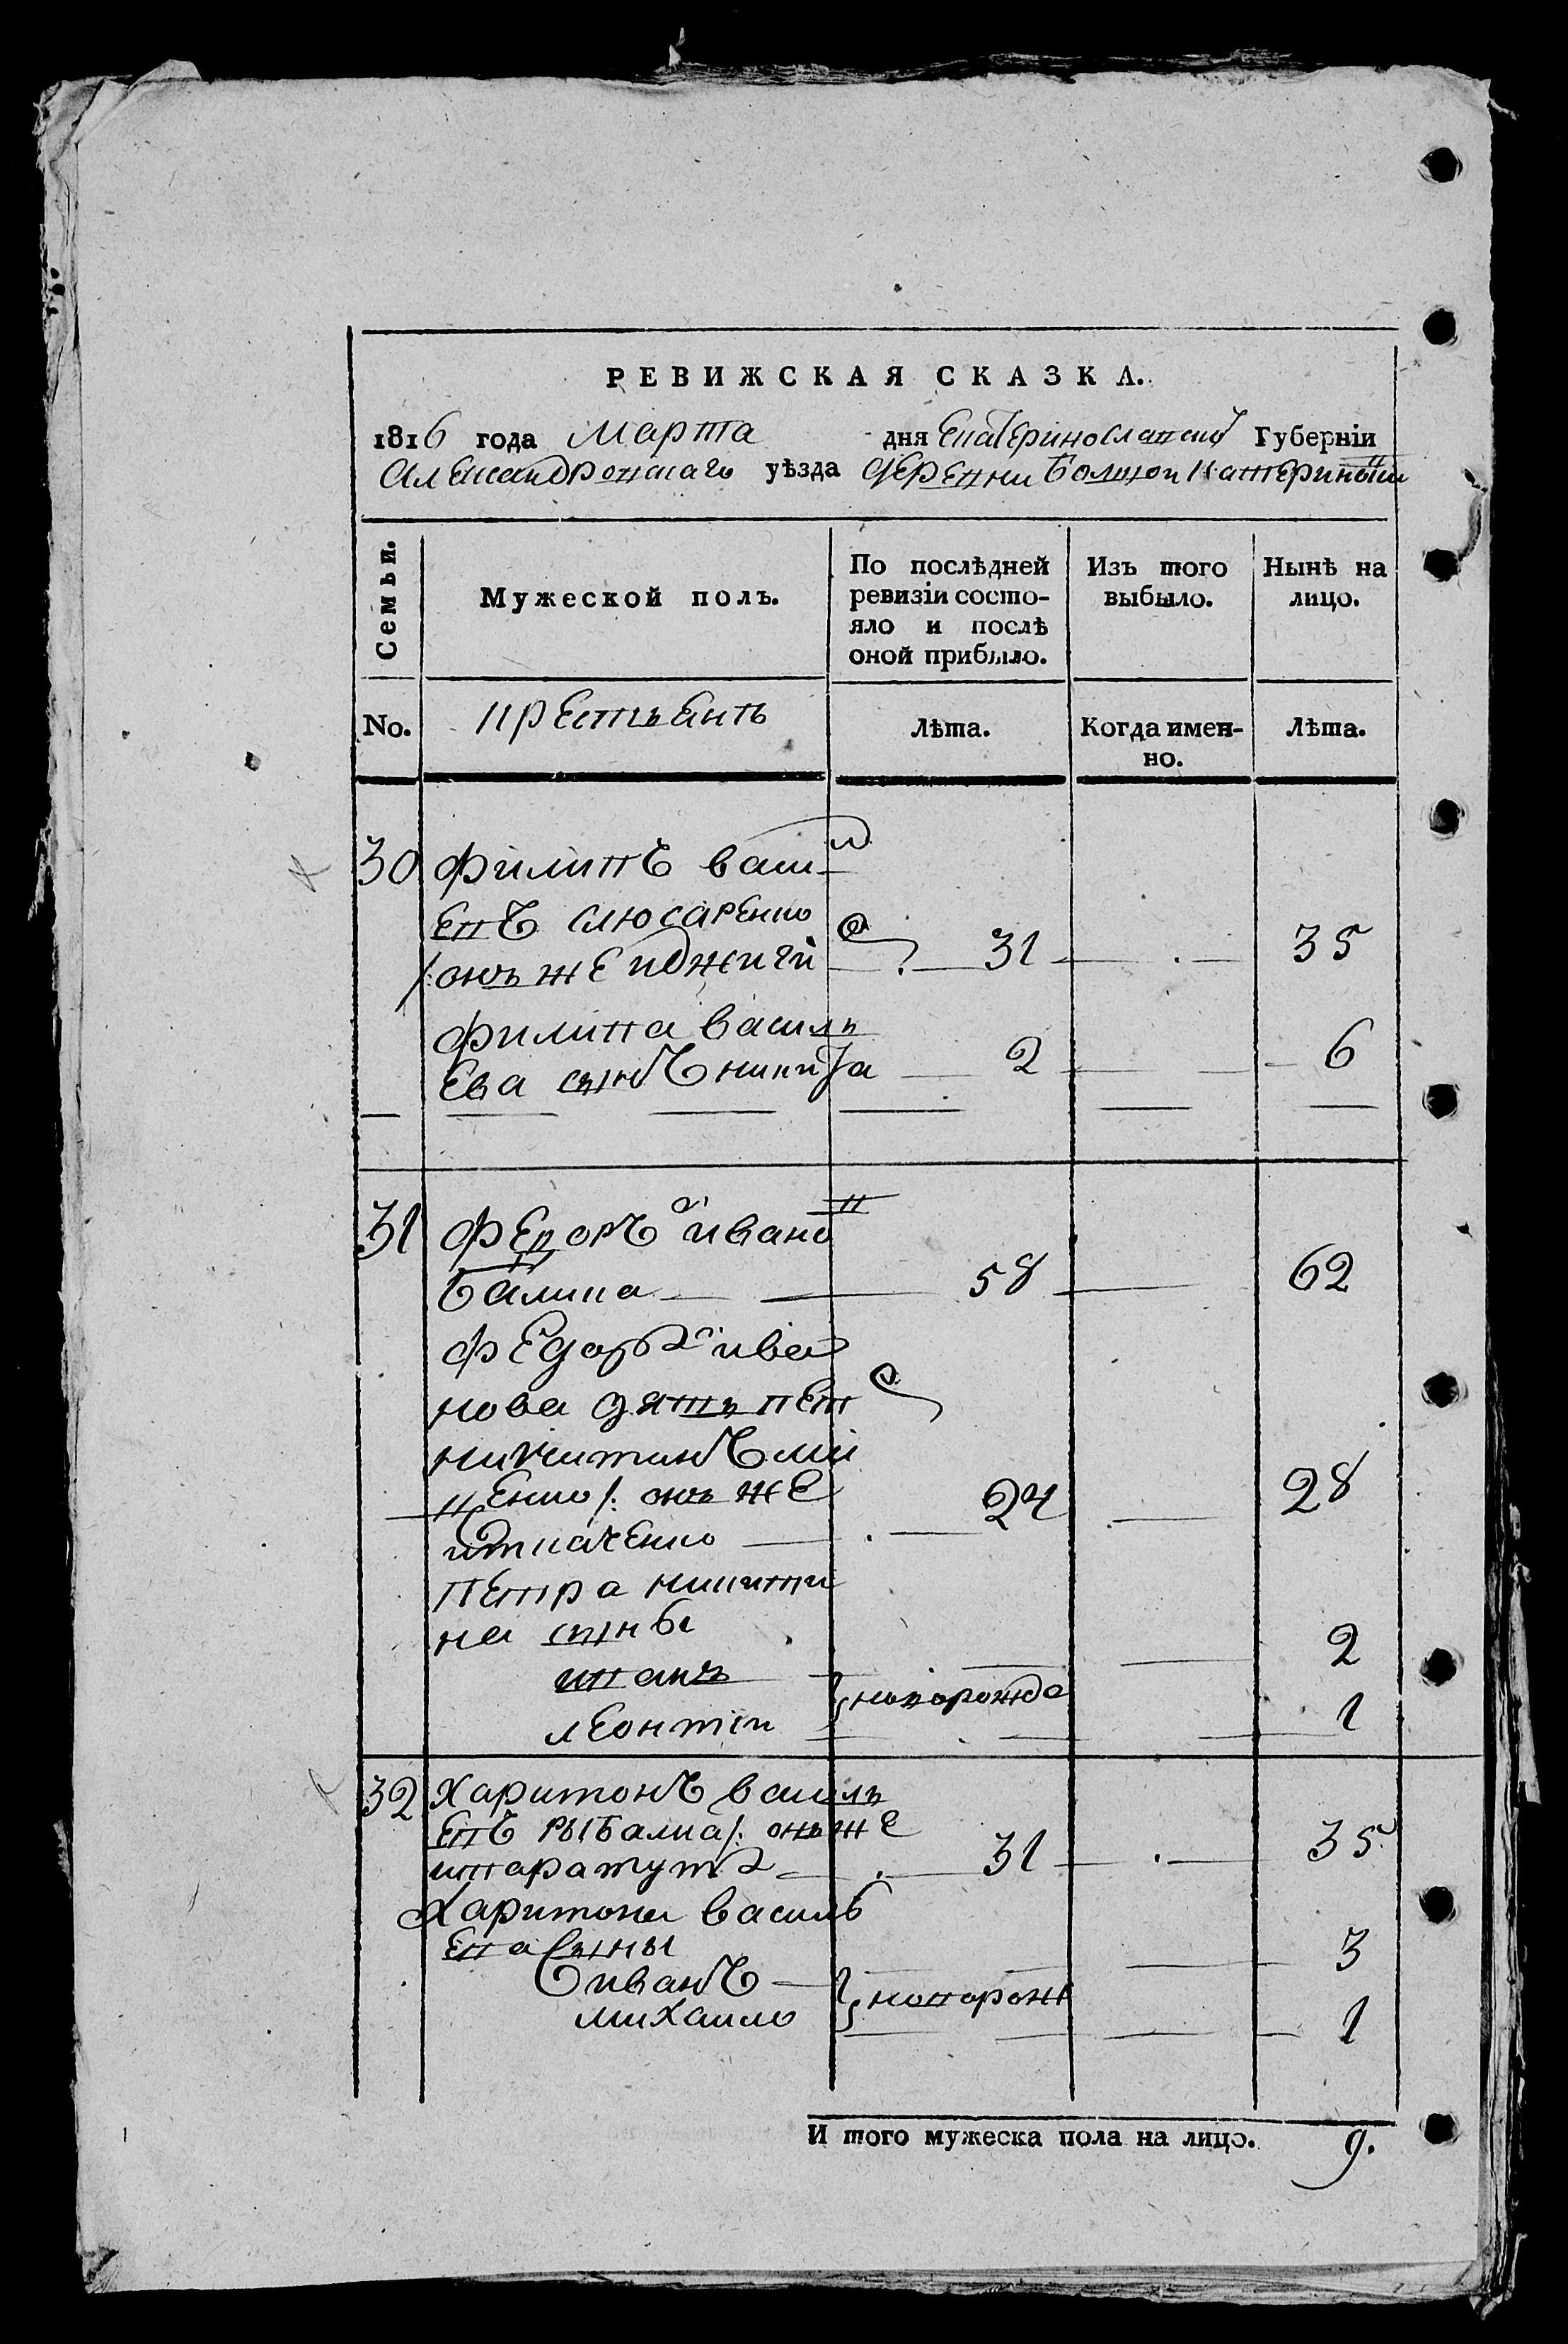 РЕВИЖСКАЯ СКАЗКА.
1816 года Марта дня Екатеринославской Губерніи
Александровскаго уѣзда Деревни Болшой Катериновки
Семьи. Мужеской полъ. По послѣдней ревизіи состояло и послѣ оной прибыло. Изъ того выбыло. Нынѣ на лицо.
No. крестьянъ Лѣта. Когда именно. Лѣта.
30 Филипъ васил
евъ слюсаренко
/: онъ же 31 35
Филипа василь
ева сынъ никита 2 6
31 Федоръ иванов
Балика 58 62
Федора ива
нова зять пет
никитинъ
енко /: онъ же 24 28
ткаченко
Петра никити
на сыны
иванъ 2
новорожде
леонтіи 1
32 Харитонъ василь
евъ рыбалка /: онъ же
шаратутъ 31 35
Харитона василь
ева сыны
иванъ 3
новорож
михаило 1
И того мужеска пола на лицо. 9.